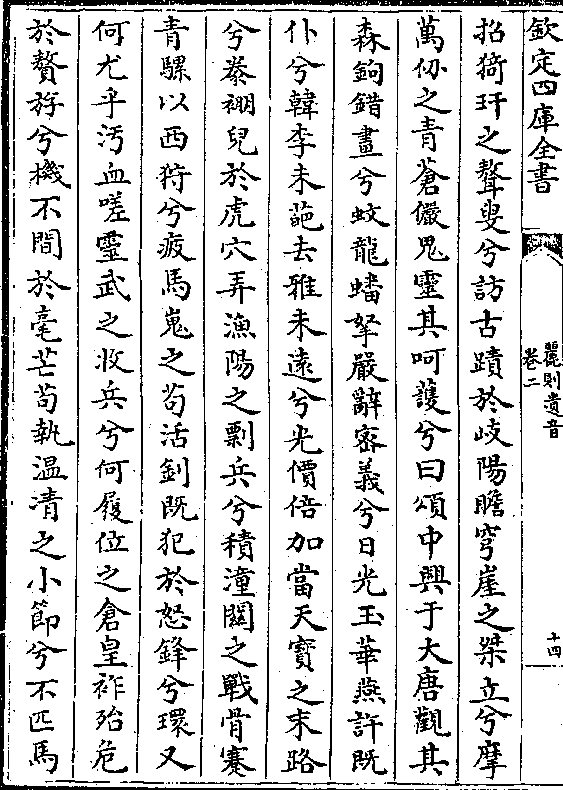 欽定四庫全書
麗則遺音
卷二
十四
招猗玕之聱叟兮訪古蹟於岐陽瞻穹崖之桀立兮摩
萬仞之青蒼儼鬼靈其呵護兮曰頌中興于大唐觀其
森鉤錯畫兮蚊龍蟠拏嚴辭密義兮日光玉華燕許既
仆兮韓李未葩去雅未遠兮光價倍加當天寳之末路
兮豢禍兒於虎穴弄漁陽之剽兵兮積潼關之戰骨蹇
青騾以西狩兮疲馬嵬之苟活釗既犯於怒鋒兮環又
何尤乎汚血嗟靈武之收兵兮何履位之倉皇祚殆危
於贅斿兮機不間於毫芒苟執温凊之小節兮不匹馬